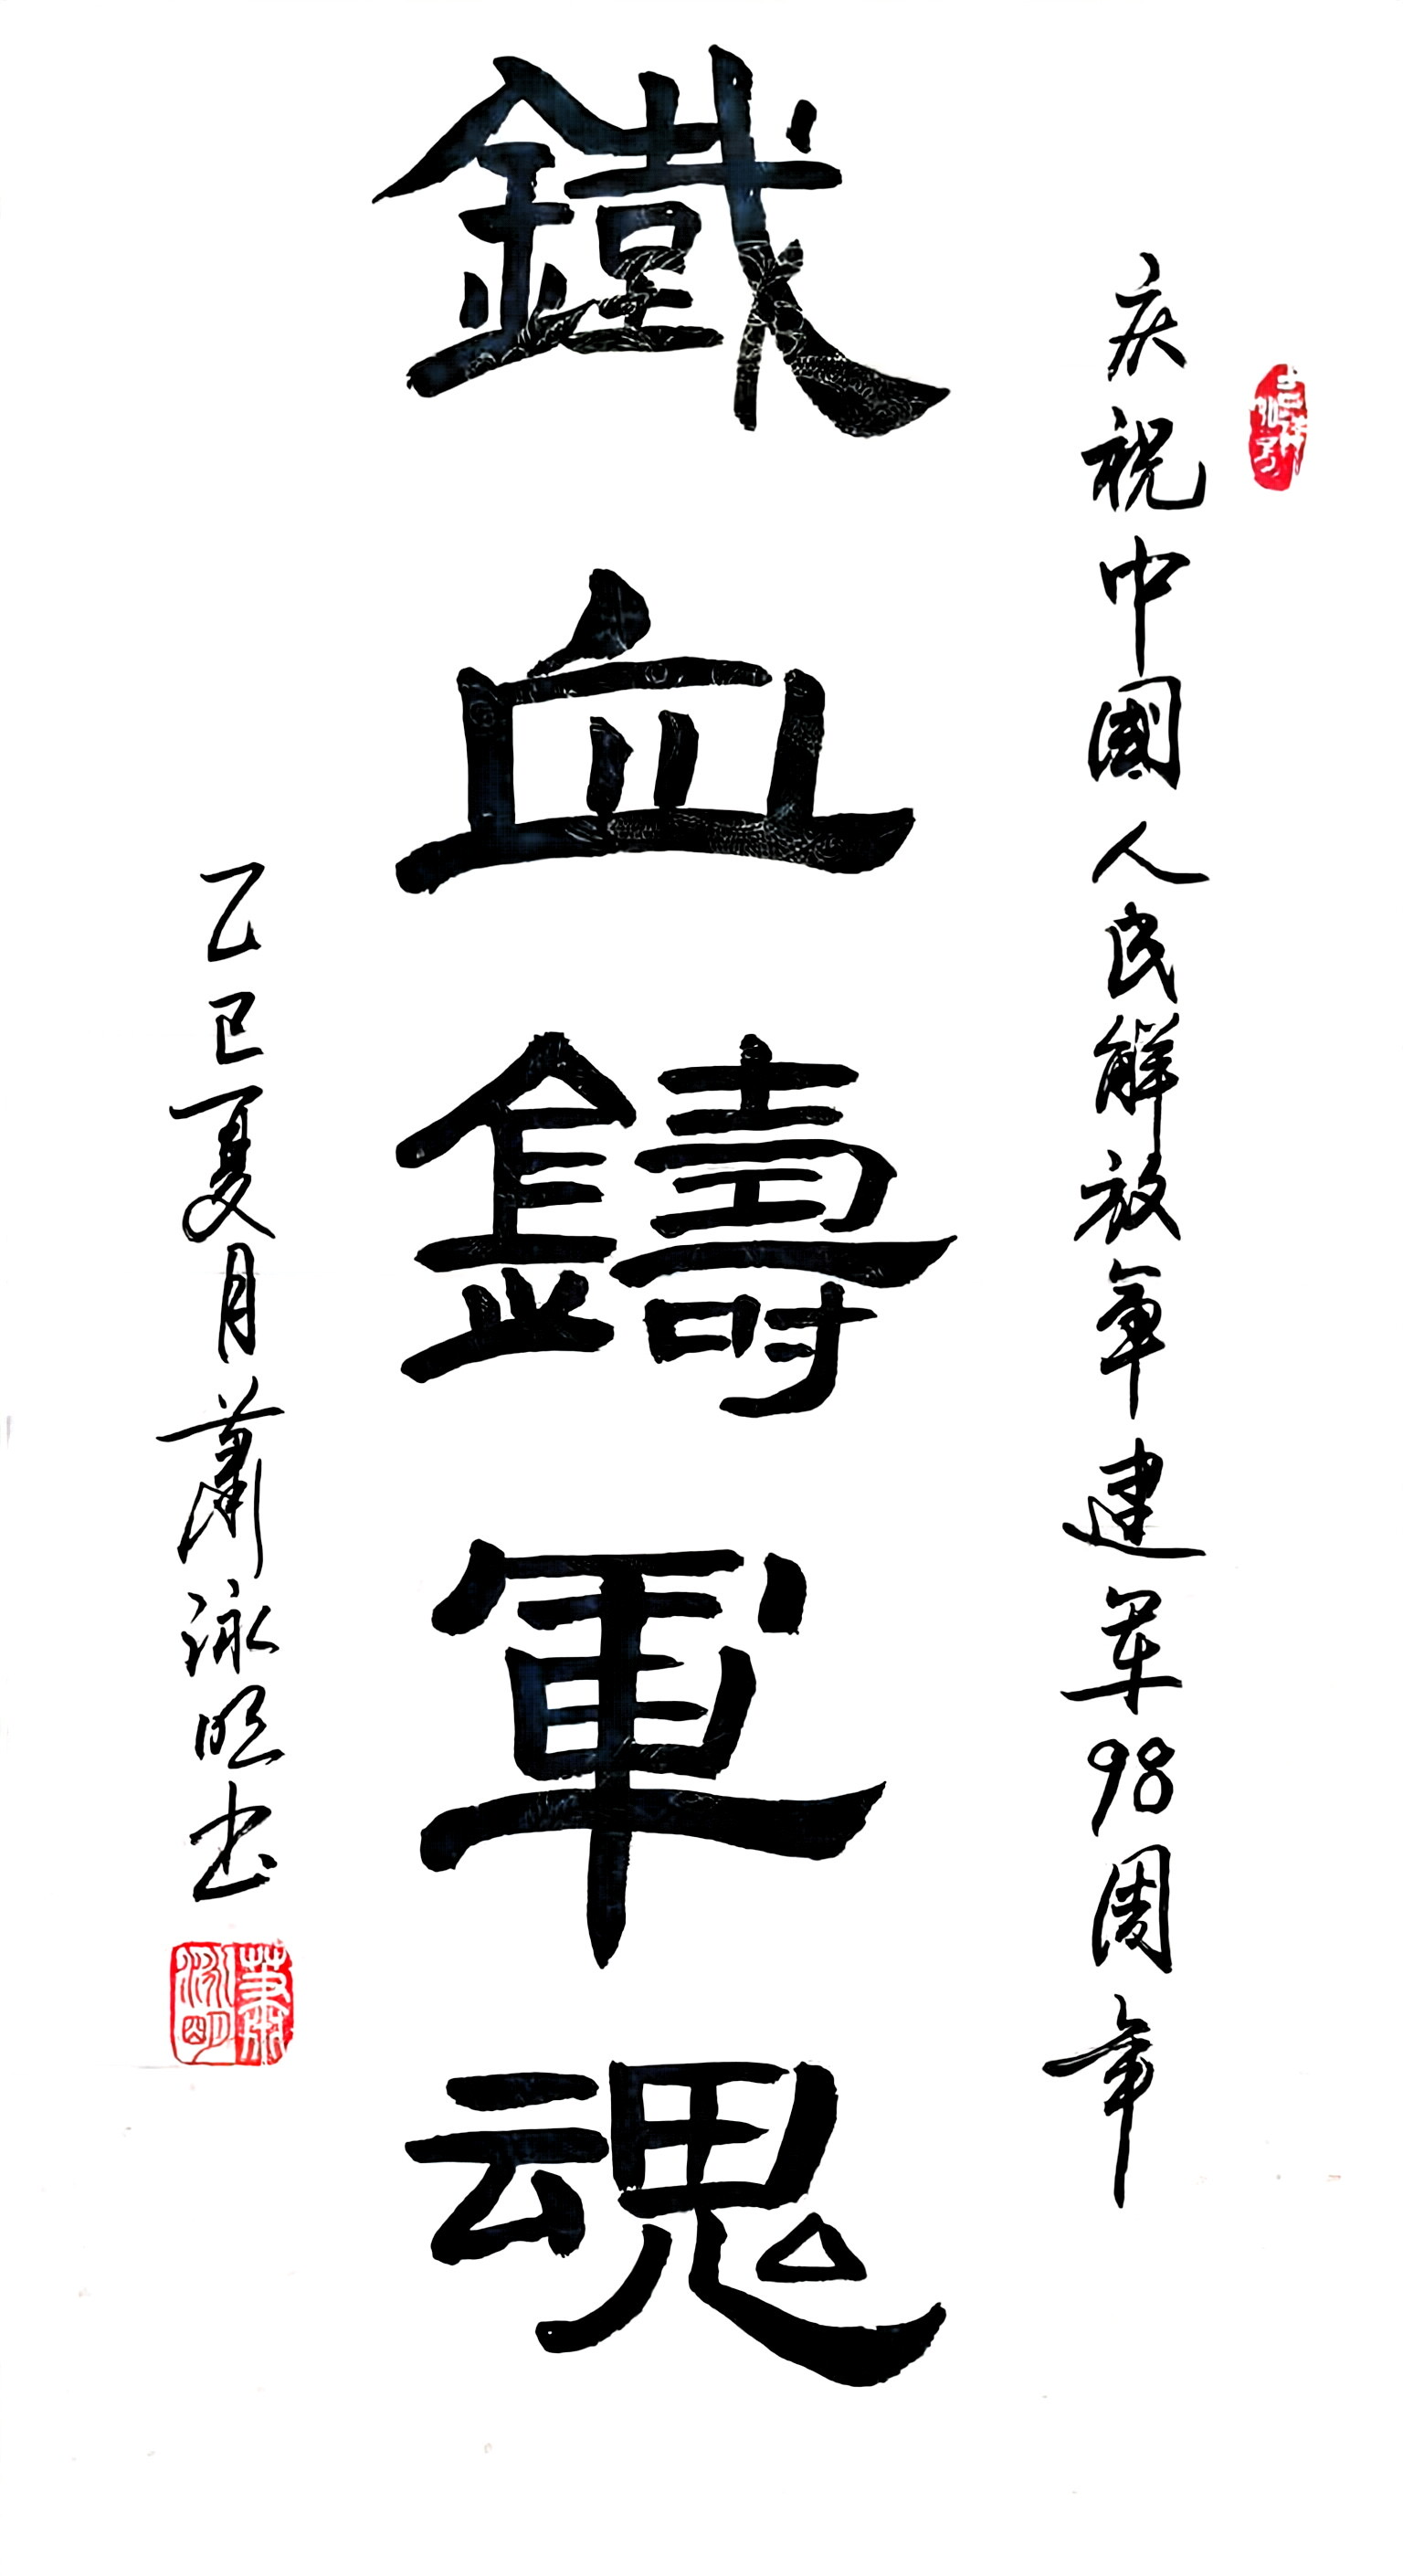 庆祝中國人民解放军建军98周年
鐵血鑄軍魂
乙巳夏月蕭泳明书
蕭泳明